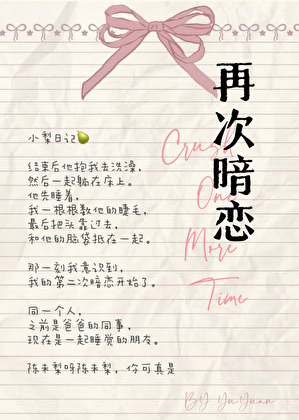 再次暗恋
Crush
One
More
Time
小梨日记🍐
结束后他抱我去洗澡,
然后一起躺在床上。
他先睡着,
我一根根数他的睫毛,
最后把头靠过去,
和他的脑袋抵在一起。
那一刻我意识到,
我的第二次暗恋开始了。
同一个人,
之前是爸爸的同事,
现在是一起睡觉的朋友。
陈未梨呀陈未梨, 你可真是
BY YuYuan